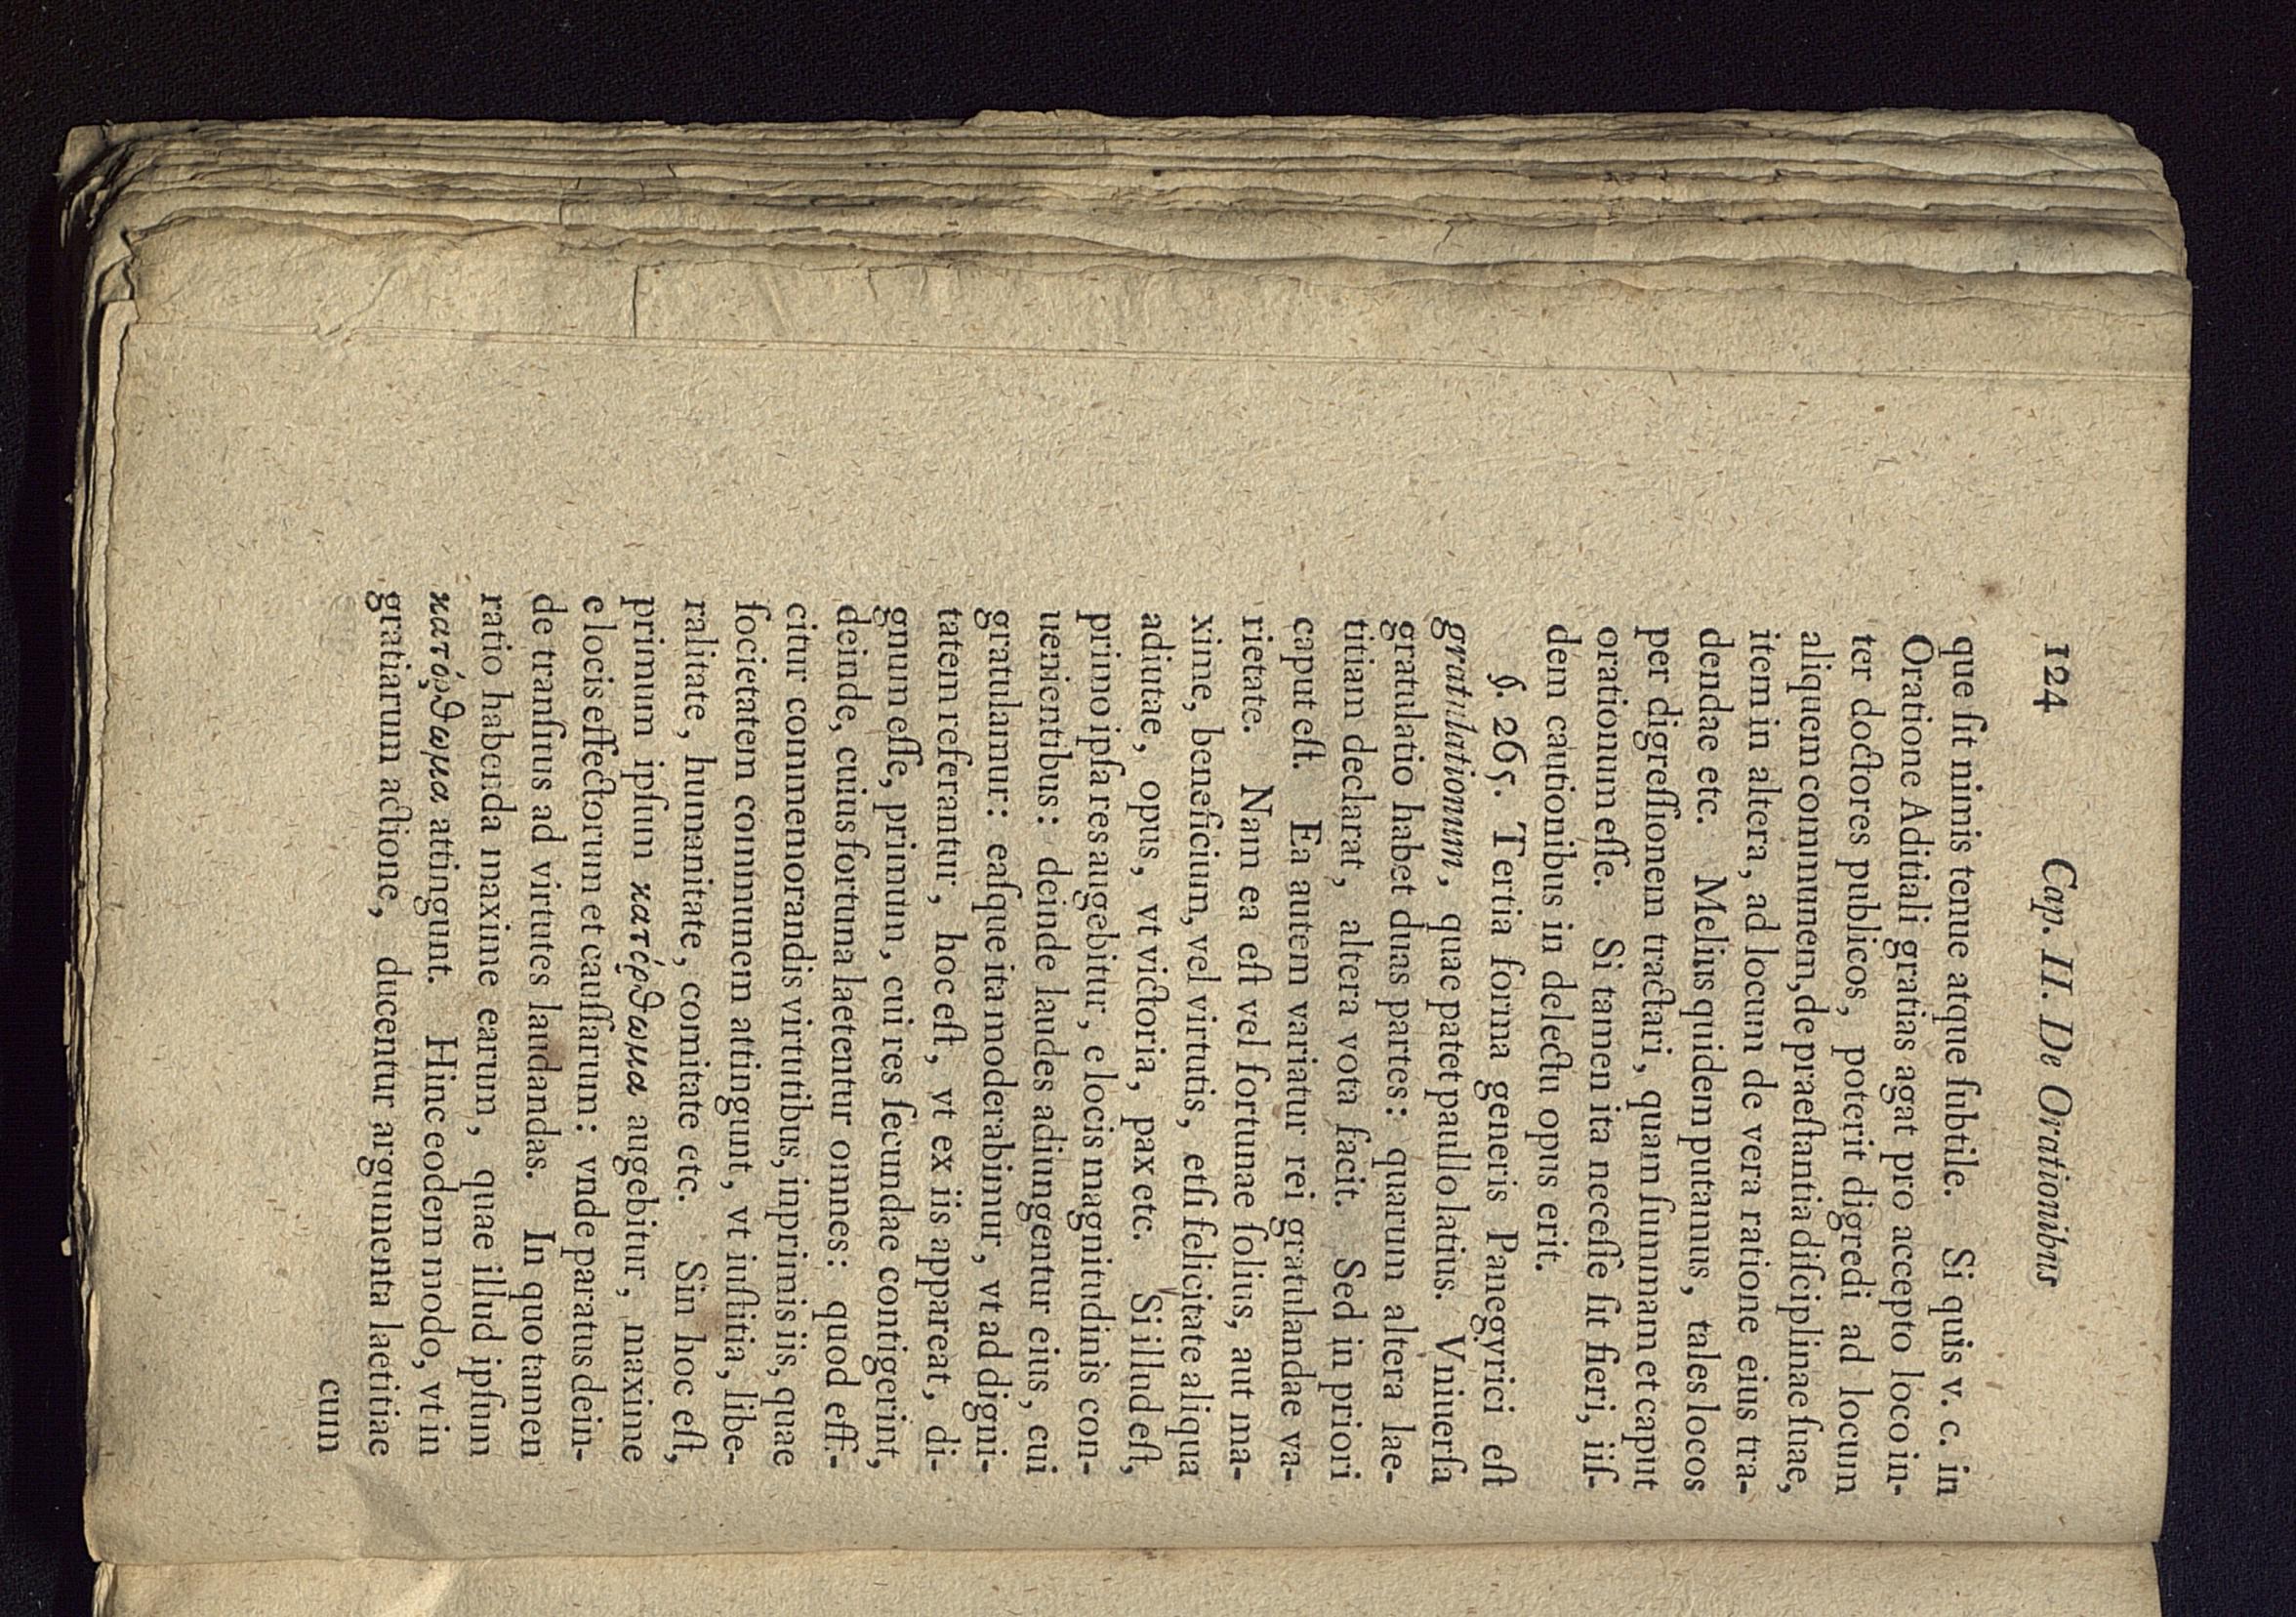 124 Cap. II. De Orationibus
que ſit nimis tenue atque ſubtile. Si quis v. c. in
Oratione Aditiali gratias agat pro accepto loco in-
ter doctores publicos, poterit digredi ad locum
aliquem communem, de praeſtantia diſciplinae ſuae,
item in altera, ad locum de vera ratione eius tra-
dendae etc. Melius quidem putamus, tales locos
per digreſſionem tractari, quam ſummam et caput
orationum eſſe. Si tamen ita neceſſe ſit fieri, iiſ-
dem cautionibus in delectu opus erit.
§. 265. Tertia forma generis Panegyrici eſt
gratulationum, quae patet paullo latius. Vniuerſa
gratulatio habet duas partes: quarum altera lae-
titiam declarat, altera vota facit. Sed in priori
caput eſt. Ea autem variatur rei gratulandae va-
rietate. Nam ea eſt vel fortunae ſolius, aut ma-
xime, beneficium, vel virtutis, etſi felicitate aliqua
adiutae, opus, vt victoria, pax etc. Si illud eſt,
primo ipſa res augebitur, e locis magnitudinis con-
uenientibus: deinde laudes adiungentur eius, cui
gratulamur: eaſque ita moderabimur, vt ad digni-
tatem referantur, hoc eſt, vt ex iis appareat, di-
gnum eſſe, primum, cui res ſecundae contigerint,
deinde, cuius fortuna laetentur omnes: quod effi-
citur commemorandis virtutibus, inprimis iis, quae
ſocietatem communem attingunt, vt iuſtitia, libe-
ralitate, humanitate, comitate etc. Sin hoc eſt,
primum ipſum κατόρθωμα augebitur, maxime
e locis effectorum et cauſſarum: vnde paratus dein-
de tranſitus ad virtutes laudandas. In quo tamen
ratio habenda maxime earum, quae illud ipſum
κατόρθωμα attingunt. Hinc eodem modo, vt in
gratiarum actione, ducentur argumenta laetitiae
cum